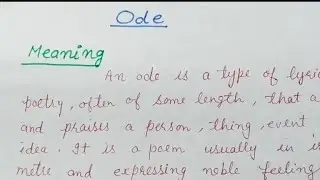 Ode
Meaning
An ode is a type of
poetry, often of some length, that
and praises a person, thing, event
idea. It is a poem usually in
metre and expressing noble